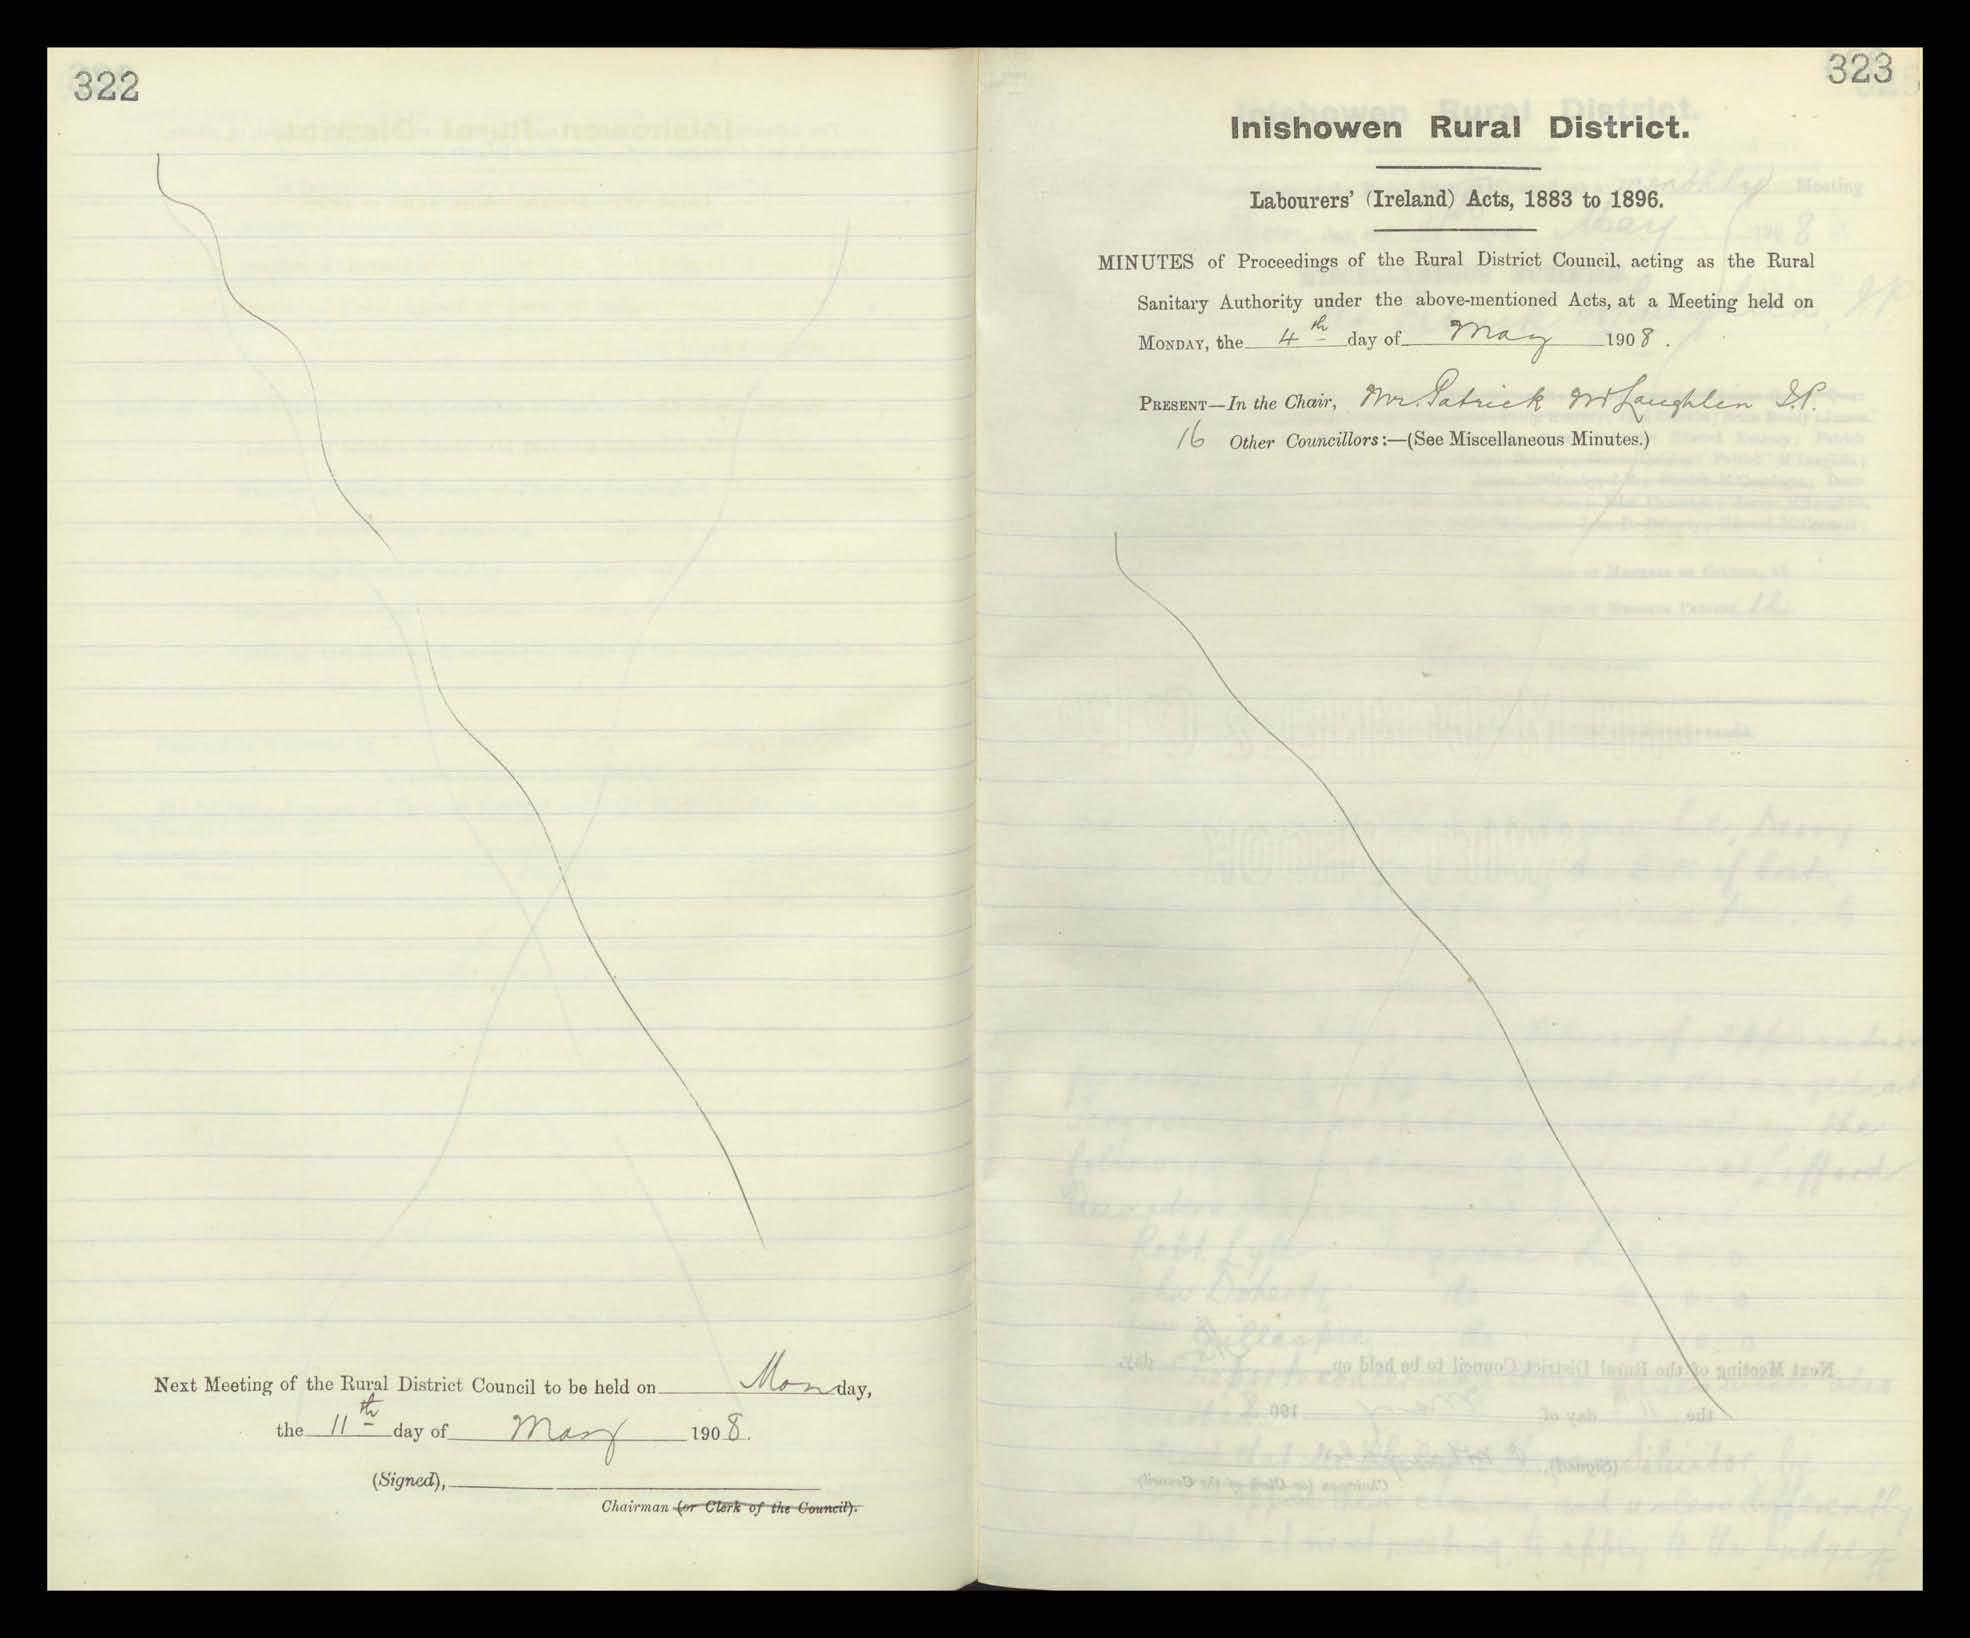 322
Next Meeting of the Rural District Council to be held on Monday,
the 11th day of May 1908.
(Signed),
Chairman (or Clerk of the Council).
323
Inishowen Rural District.
Labourers' (Ireland) Acts, 1883 to 1896.
MINUTES of Proceedings of the Rural District Council, acting as the Rural
Sanitary Authority under the above-mentioned Acts, at a Meeting held on
MONDAY, the 4th day of May 1908.
PRESENT—In the Chair, Mr. Patrick McLaughlin J.P.
16 Other Councillors:—(See Miscellaneous Minutes.)